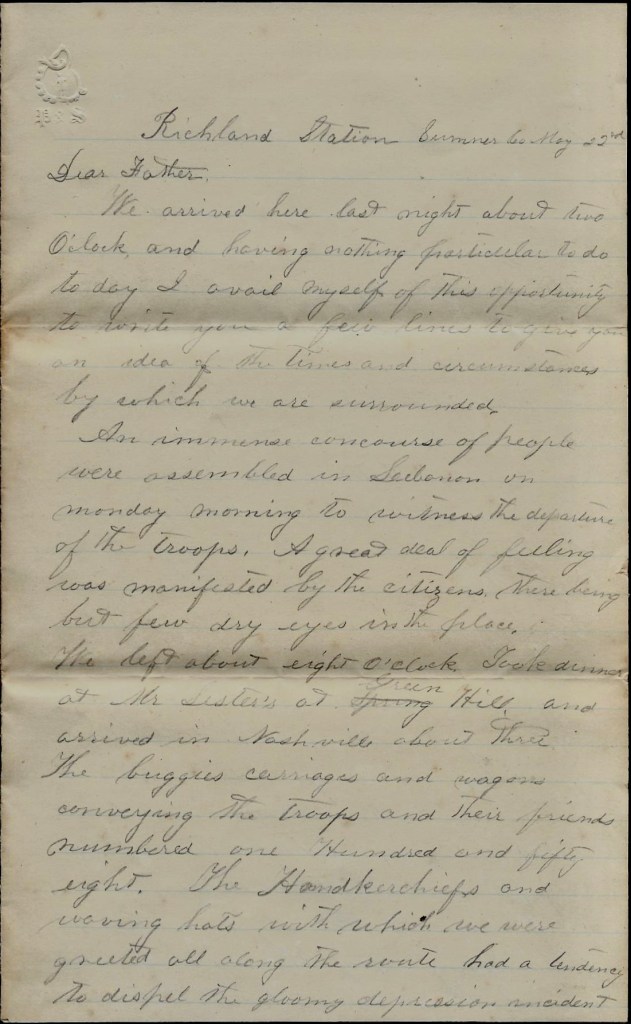 Richland Station Sumner Co May 22nd
Dear Father.
We arrived here last night about two
O'clock, and having nothing particular to do
to day I avail myself of this opportunity
to write you a few lines to give you
an idea of the times and circumstances
by which we are surrounded.
An immense concourse of people
were assembled in Lebanon on
monday morning to witness the departure
of the troops. A great deal of feeling
was manifested by the citizens, there being
but few dry eyes in the place.
We left about eight O'clock. Took dinner
Green
at Mr Lester's at Spring Hill, and
arrived in Nashville about Three.
The buggies carriages and wagons
conveying the troops and their friends
numbered one Hundred and fifty
eight. The Handkerchiefs and
waving hats with which we were
greeted all along the route had a tendency
to dispel the gloomy depression incident